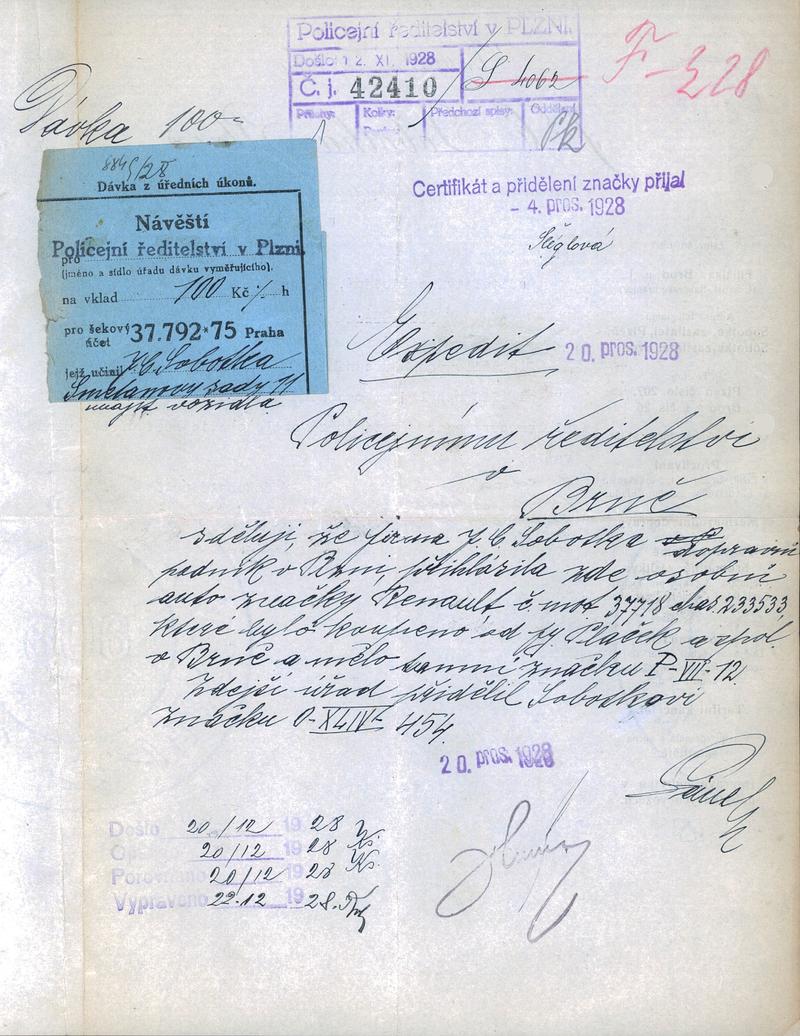 Policejní ředitelství v PLZNI.
Došlo: 2. XI. 1928
Č. j. 42410 / S 4062
F-328
Přílohy: Kolky: Předchozí spisy: Oddělení
Dávka 100-
8845/28
Dávka z úředních úkonů.
Návěští
Policejní ředitelství v Plzni.
pro
(jméno a sídlo úřadu dávku vyměřujícího).
na vklad 100 Kč h
pro šekový účet 37.792*75 Praha
jejž učinil J C Sobotka
Smetanovy sady 11
majit vozidla
Certifikát a přidělení značky přijal
- 4. pros. 1928
Expedit 20. pros. 1928
Policejnímu ředitelství
v
Brně
sděluji, že firma J. C. Sobotka dopravní
podnik v Plzni, přihlásila zde osobní
auto značky Renault, č. mot 37718 chas. 233533,
které bylo koupeno od fy. Pláček a spol.
v Brně a mělo tamní značku P-VII-12.
Zdejší úřad přidělil Sobotkovi
značku O-XLIV-454.
20. pros. 1928
Došlo 20/12 1928
20/12 1928
Porovnáno 20/12 1928
Vypraveno 22.12 1928.